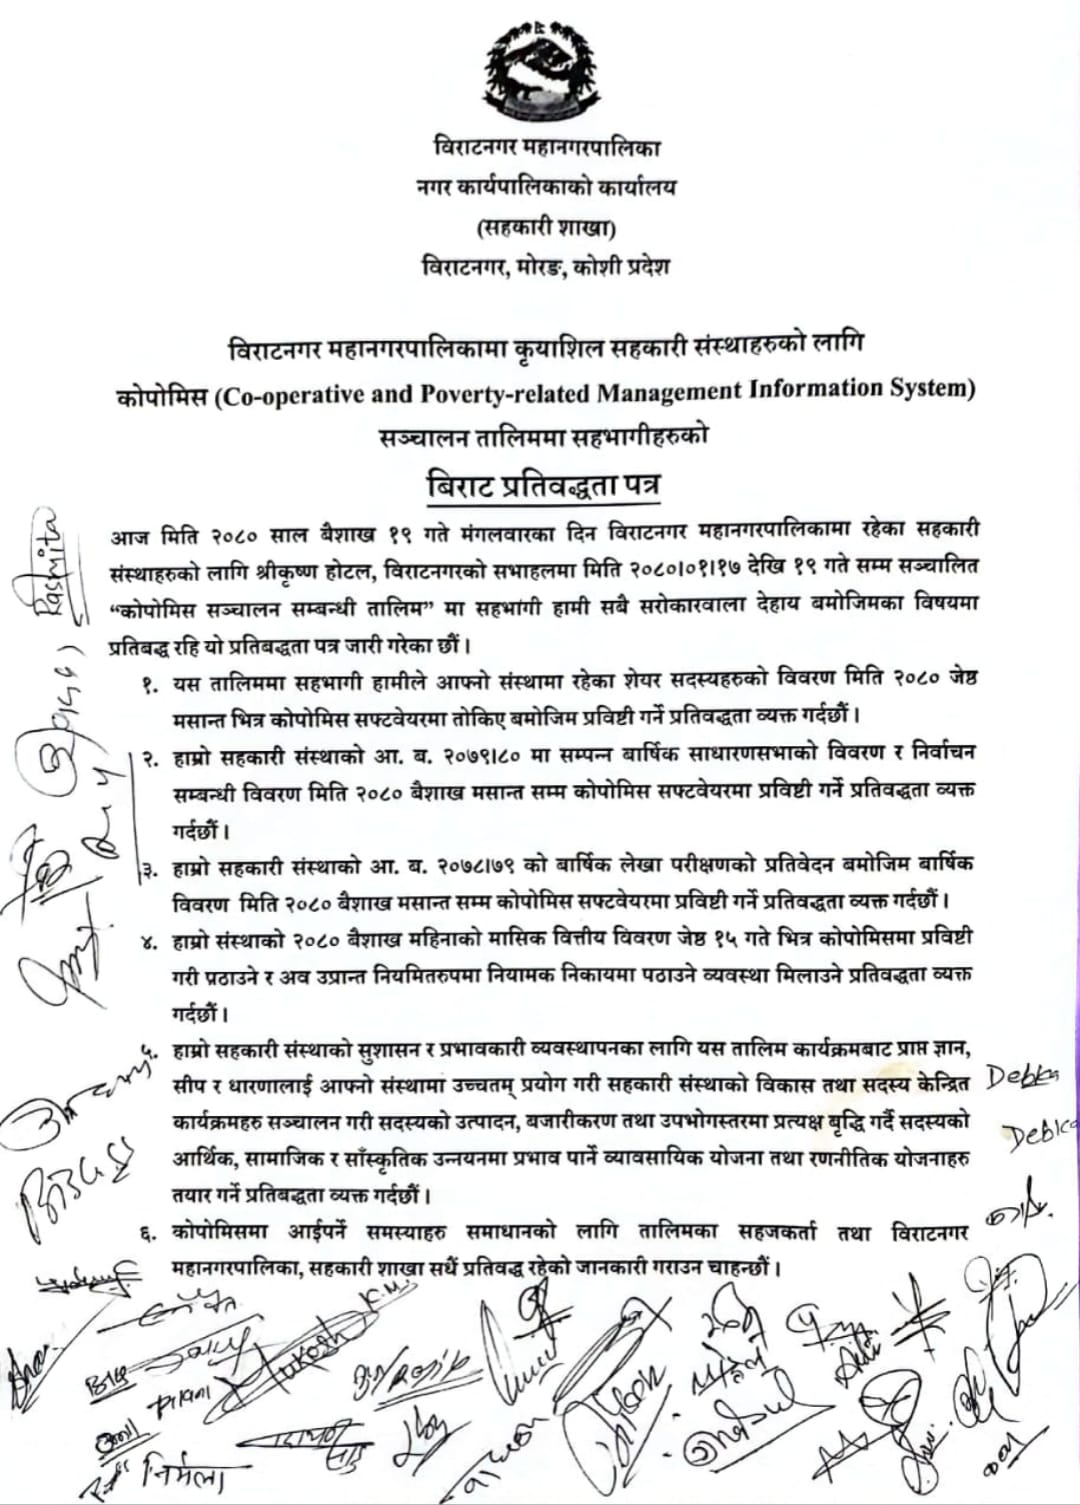 विराटनगर महानगरपालिका
नगर कार्यपालिकाको कार्यालय
(सहकारी शाखा)
विराटनगर, मोरङ, कोशी प्रदेश
विराटनगर महानगरपालिकामा कृयाशिल सहकारी संस्थाहरुको लागि
कोपोमिस (Co-operative and Poverty-related Management Information System)
सञ्चालन तालिममा सहभागीहरुको
बिराट प्रतिवद्धता पत्र
आज मिति २०८० साल बैशाख १९ गते मंगलवारका दिन विराटनगर महानगरपालिकामा रहेका सहकारी
संस्थाहरुको लागि श्रीकृष्ण होटल, विराटनगरको सभाहलमा मिति २०८०।०१।१७ देखि १९ गते सम्म सञ्चालित
“कोपोमिस सञ्चालन सम्बन्धी तालिम” मा सहभांगी हामी सबै सरोकारवाला देहाय बमोजिमका विषयमा
प्रतिबद्ध रहि यो प्रतिबद्धता पत्र जारी गरेका छौं।
१. यस तालिममा सहभागी हामीले आफ्नो संस्थामा रहेका शेयर सदस्यहरुको विवरण मिति २०८० जेष्ठ
मसान्त भित्र कोपोमिस सफ्टवेयरमा तोकिए बमोजिम प्रविष्टी गर्ने प्रतिवद्धता व्यक्त गर्दछौं।
२. हाम्रो सहकारी संस्थाको आ. ब. २०७९।८० मा सम्पन्न बार्षिक साधारणसभाको विवरण र निर्वाचन
सम्बन्धी विवरण मिति २०८० बैशाख मसान्त सम्म कोपोमिस सफ्टवेयरमा प्रविष्टी गर्ने प्रतिवद्धता व्यक्त
गर्दछौं।
३. हाम्रो सहकारी संस्थाको आ. ब. २०७८।७९ को बार्षिक लेखा परीक्षणको प्रतिवेदन बमोजिम बार्षिक
विवरण मिति २०८० बैशाख मसान्त सम्म कोपोमिस सफ्टवेयरमा प्रविष्टी गर्ने प्रतिवद्धता व्यक्त गर्दछौं।
४. हाम्रो संस्थाको २०८० बैशाख महिनाको मासिक वित्तीय विवरण जेष्ठ १५ गते भित्र कोपोमिसमा प्रविष्टी
गरी प्रठाउने र अव उप्रान्त नियमितरुपमा नियामक निकायमा पठाउने व्यवस्था मिलाउने प्रतिवद्धता व्यक्त
गर्दछौं।
५. हाम्रो सहकारी संस्थाको सुशासन र प्रभावकारी व्यवस्थापनका लागि यस तालिम कार्यक्रमबाट प्राप्त ज्ञान,
सीप र धारणालाई आफ्नो संस्थामा उच्चतम् प्रयोग गरी सहकारी संस्थाको विकास तथा सदस्य केन्द्रित
कार्यक्रमहरु सञ्चालन गरी सदस्यको उत्पादन, बजारीकरण तथा उपभोगस्तरमा प्रत्यक्ष बृद्धि गर्दै सदस्यको
आर्थिक, सामाजिक र साँस्कृतिक उन्नयनमा प्रभाव पार्ने व्यावसायिक योजना तथा रणनीतिक योजनाहरु
तयार गर्ने प्रतिबद्धता व्यक्त गर्दछौं।
६. कोपोमिसमा आईपर्ने समस्याहरु समाधानको लागि तालिमका सहजकर्ता तथा विराटनगर
महानगरपालिका, सहकारी शाखा सधैं प्रतिवद्ध रहेको जानकारी गराउन चाहन्छौं।
Rashmita
Debka
निर्मला